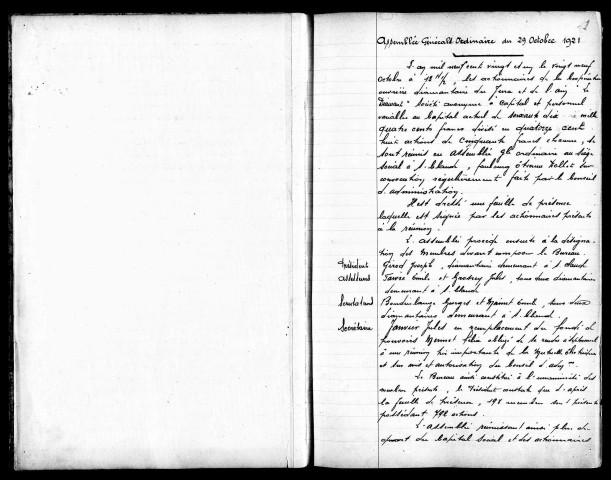 1
Assemblée Générale Ordinaire du 29 Octobre 1921
L'an mil neuf cent vingt et un le vingt neuf
octobre à 18 h ½, les actionnaires de la Coopération
ouvrière diamantaire du Jura et de l'ain "Le
Diamant" Société anonyme à capital et personnel
variable au Capital actuel de soixante dix mille
quatre cents francs divisé en quatorze cent
huit actions de cinquante francs chacune, se
sont réunis en Assemblée gle ordinaire au siège
social à St Claude, faubourg Etienne Dollet sur
convocation régulièrement faite par le Conseil
d'administration.
Il est dressé une feuille de présence
laquelle est signée par les actionnaires présents
à la réunion.
L'assemblée procède ensuite à la désigna-
tion des Membres devant composer le Bureau.
Président Girod Joseph, diamantaire demeurant à St Claude
assesseurs Favre Emile et Jules, tous deux diamantaires
demeurant à St Claude
Scrutateurs Georges et Emile, tous deux
diamantaires, demeurant à St Claude.
Secrétaire Janvier Jules en remplacement du fondé de
pouvoirs Félix obligé de se rendre
à une réunion très importante de la Mutuelle
et sur avis et autorisation du Conseil d'adon
Le Bureau ainsi constitué à l'unanimité des
membres présents, le Président constate que d'après
la feuille de présence, 198 membres sont présents
possédant 792 actions.
L'assemblée réunissant ainsi plus du
quart du Capital social et des actionnaires